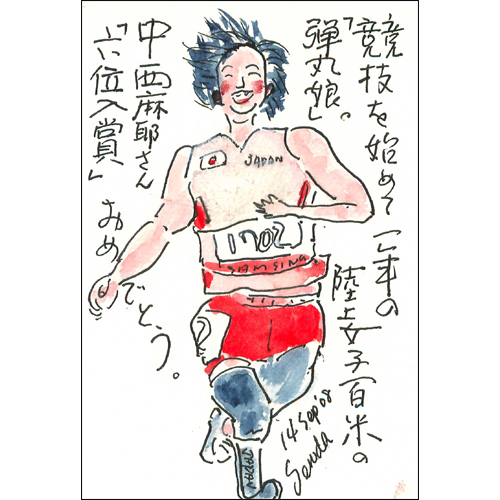 「競技を始めて一年の
陸上女子百米の
弾丸娘」。
中西麻耶さん
「六位入賞」
おめでとう。
JAPAN
1702
SAMSUNG
JAPAN
14 Sep '08